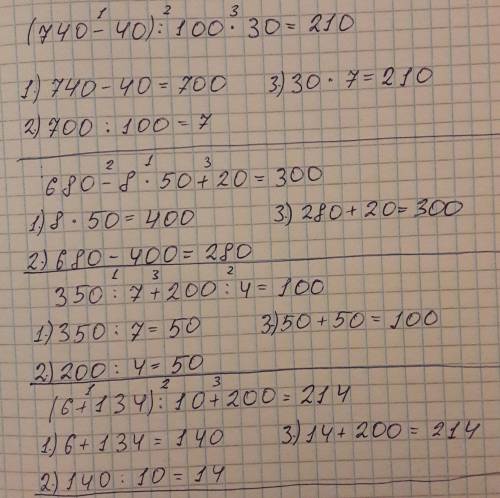 (740 - 40) : 100 · 30 = 210
1) 740 - 40 = 700 3) 30 · 7 = 210
2) 700 : 100 = 7
680 - 8 · 50 + 20 = 300
1) 8 · 50 = 400 3) 280 + 20 = 300
2) 680 - 400 = 280
350 : 7 + 200 : 4 = 100
1) 350 : 7 = 50 3) 50 + 50 = 100
2) 200 : 4 = 50
(6 + 134) : 10 + 200 = 214
1) 6 + 134 = 140 3) 14 + 200 = 214
2) 140 : 10 = 14